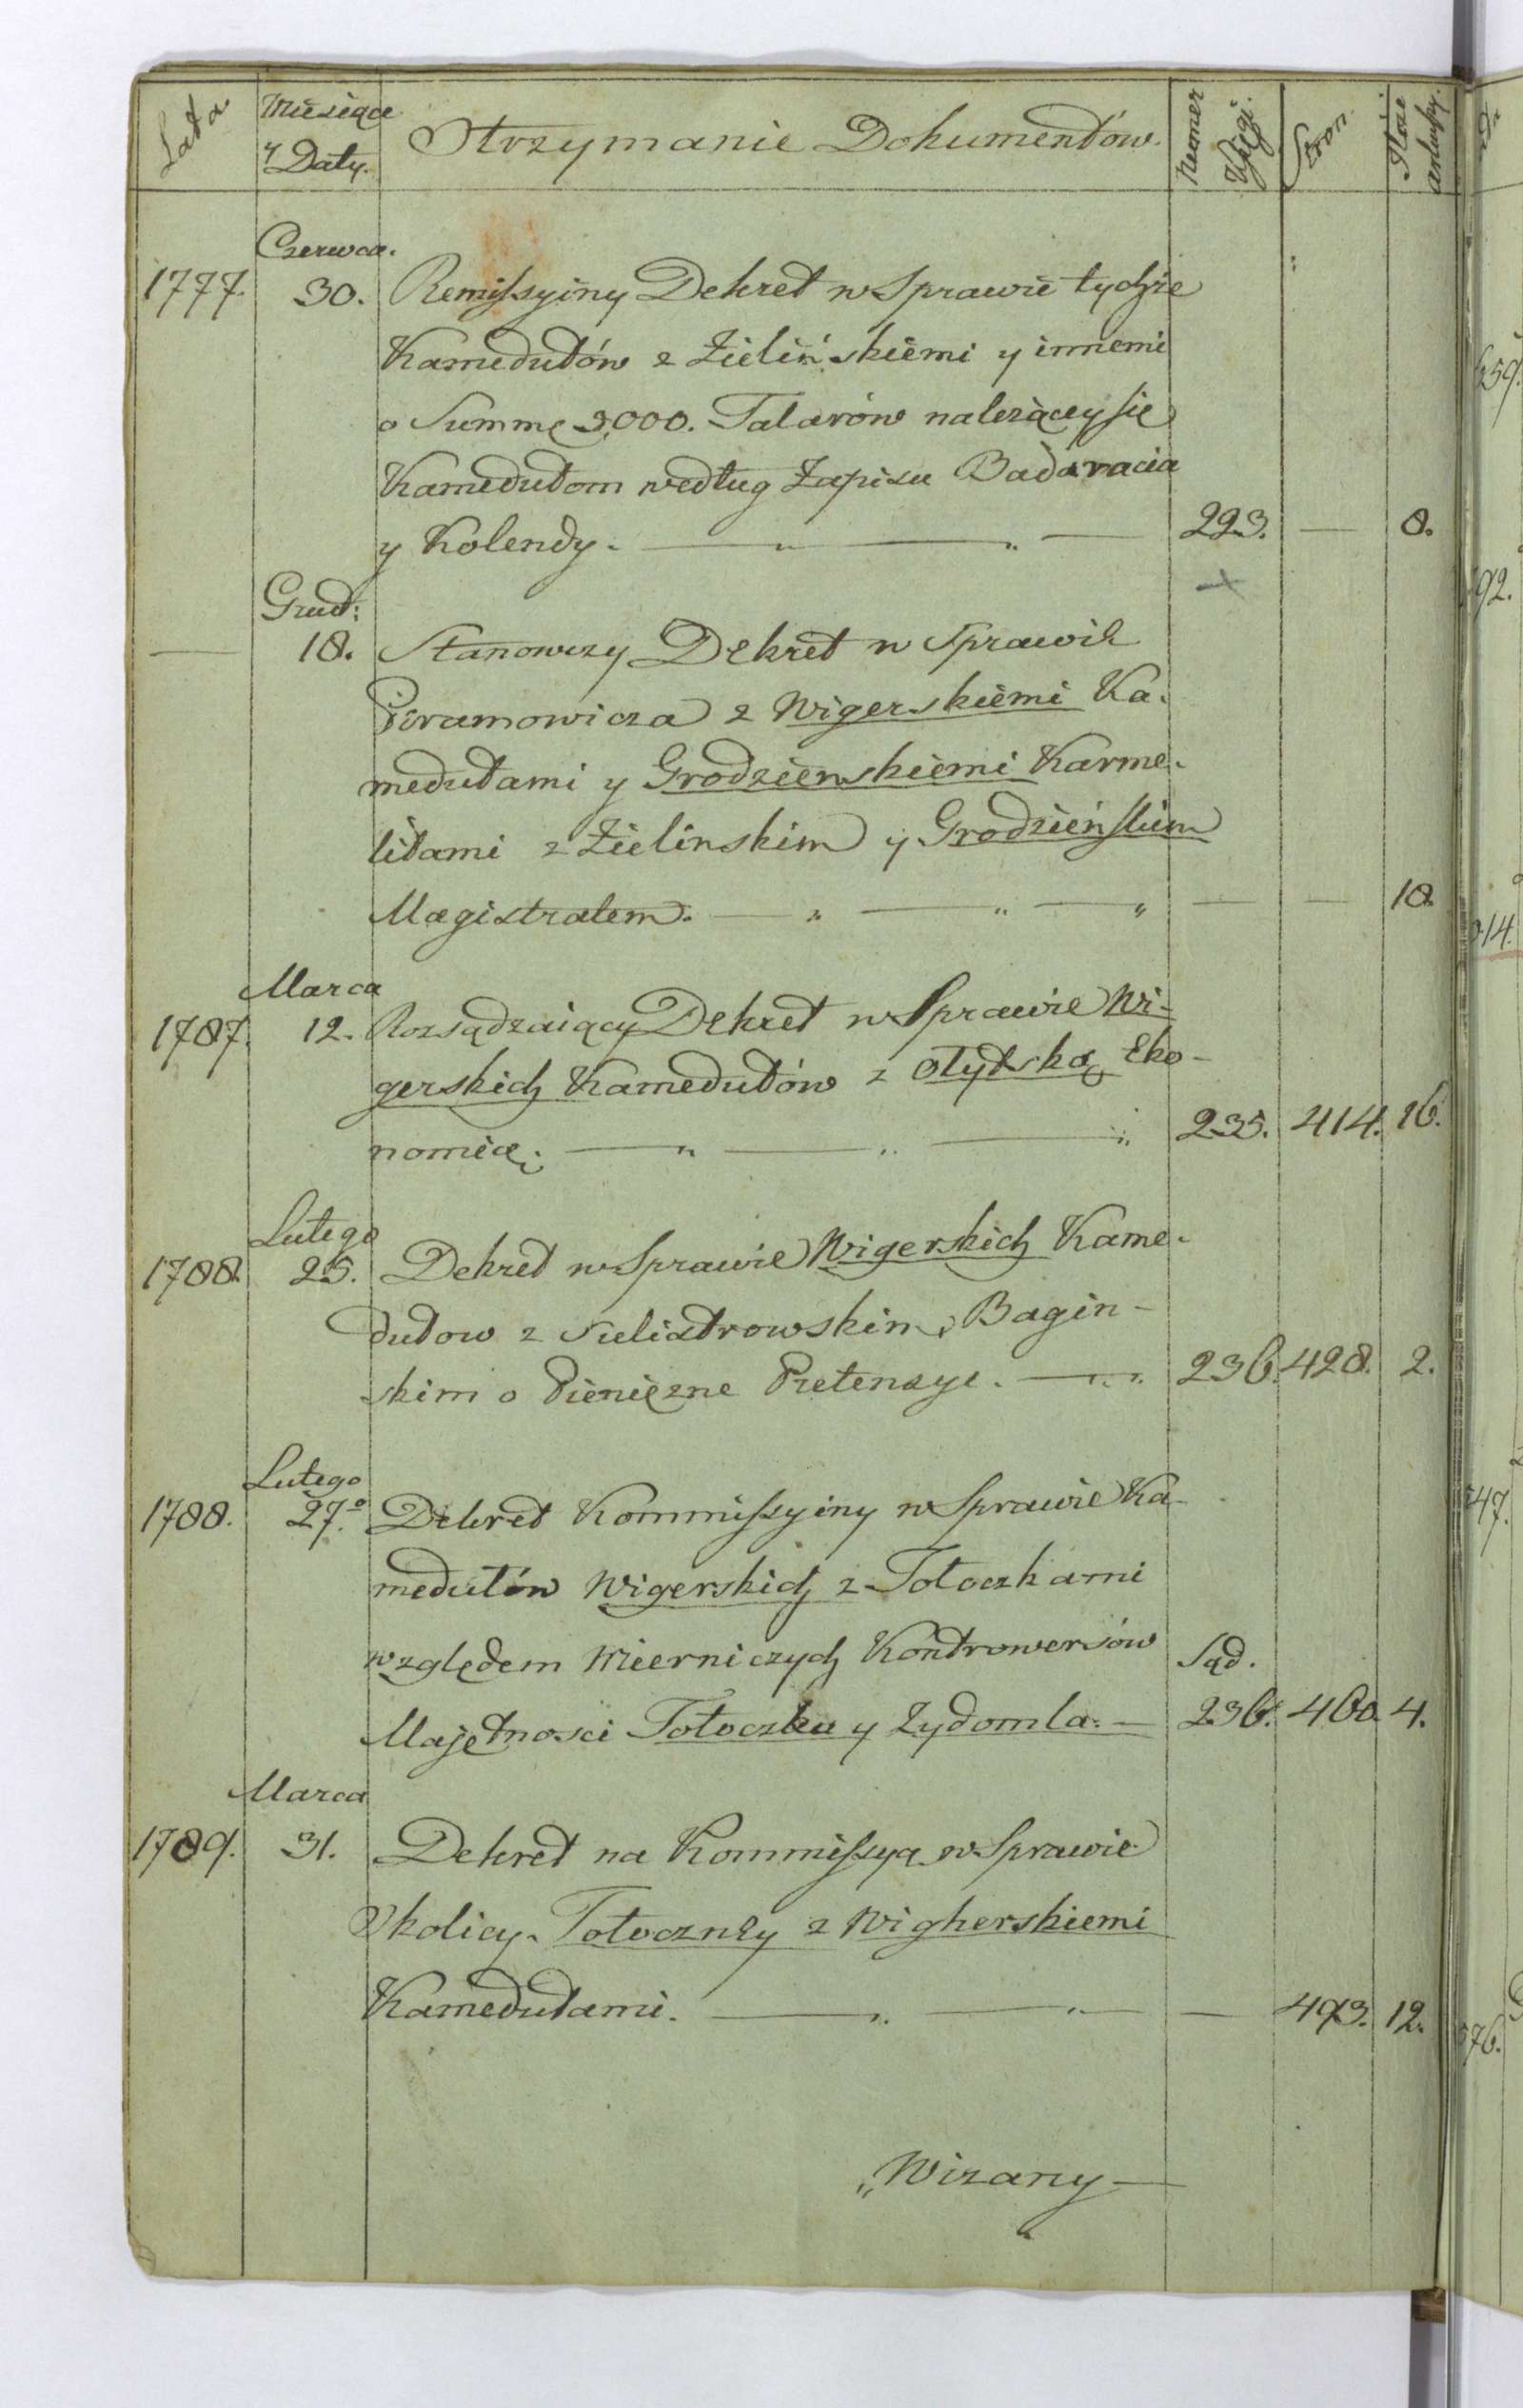 Lata
Miesiące
y Daty.
Otrzymanie Dokumentów.
Numer
Księgi.
Stron.
Czerwca.
1777. 30. Remissyiny Dekret w Sprawie tychże
Kamedułów z Zielińskiemi y innemi
o Summę 2,000. Talarów należącey się
Kamedułom według Zapisu Badaracia
y Kolendy. 223. — 8.
Grud:
— 18. Stanowczy Dekret w Sprawie
Piramowicza z Wigerskiemi Ka-
medułami y Grodzienskiemi Karme-
litami z Zielinskim y Grodzieńskim
Magistratem. — — 18.
Marca
1787. 12. Rozsądzaiący Dekret w Sprawie Wi-
gerskich Kamedułów z Olytską Eko-
nomią. 235. 414. 16.
Lutego
1788. 25. Dekret w Sprawie Wigerskich Kame-
dułow z Sulistrowskim, Bagin-
skim o Pieniężne Pretensye. 236. 428. 2.
Lutego
1788. 27.o Dekret Kommissyiny w Sprawie Ka-
medułów Wigerskich z Tołoczkami
względem Mierniczych Kontrowersów Sąd.
Majętnosci Tołoczka y Zydomla. 236. 460. 4.
Marca
1789. 31. Dekret na Kommissyą w Sprawie
Okolicy Tołoczney z Wigherskiemi
Kamedułami. — 493. 12.
„Wizany —
659.
92.
014.
47.
576.